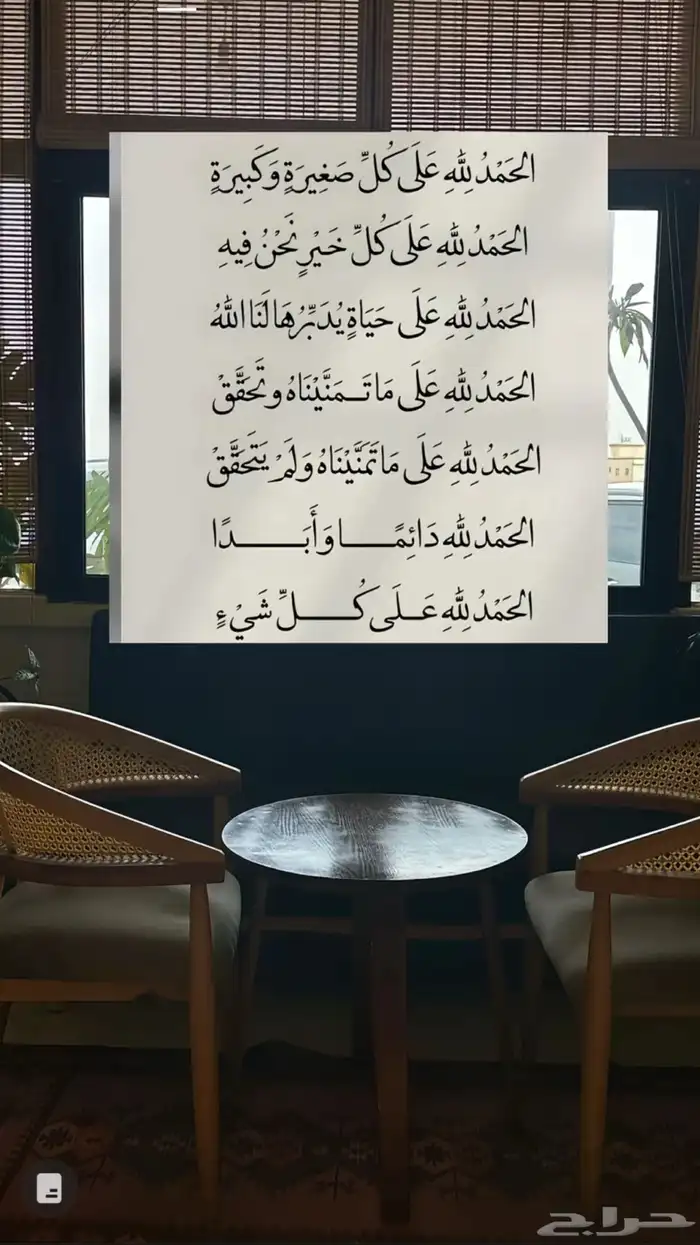 الحَمْدُ لِلَّهِ عَلَى كُلِّ صَغِيرَةٍ وَكَبِيرَةٍ
الحَمْدُ لِلَّهِ عَلَى كُلِّ خَيْرٍ نَحْنُ فِيهِ
الحَمْدُ لِلَّهِ عَلَى حَيَاةٍ يُدَبِّرُهَا لَنَا اللهُ
الحَمْدُ لِلَّهِ عَلَى مَا تَـمَنَّيْنَاهُ وتَحَقَّقْ
الحَمْدُ لِلَّهِ عَلَى مَا تَمَنَّيْنَاهُ وَلَمْ يَتَحَقَّقْ
الحَمْدُ لِلَّهِ دَائِمًـــا وَأَبَـــــدًا
الحَمْدُ لِلَّهِ عَـلَى كُـــــلِّ شَيْءٍ
حراج